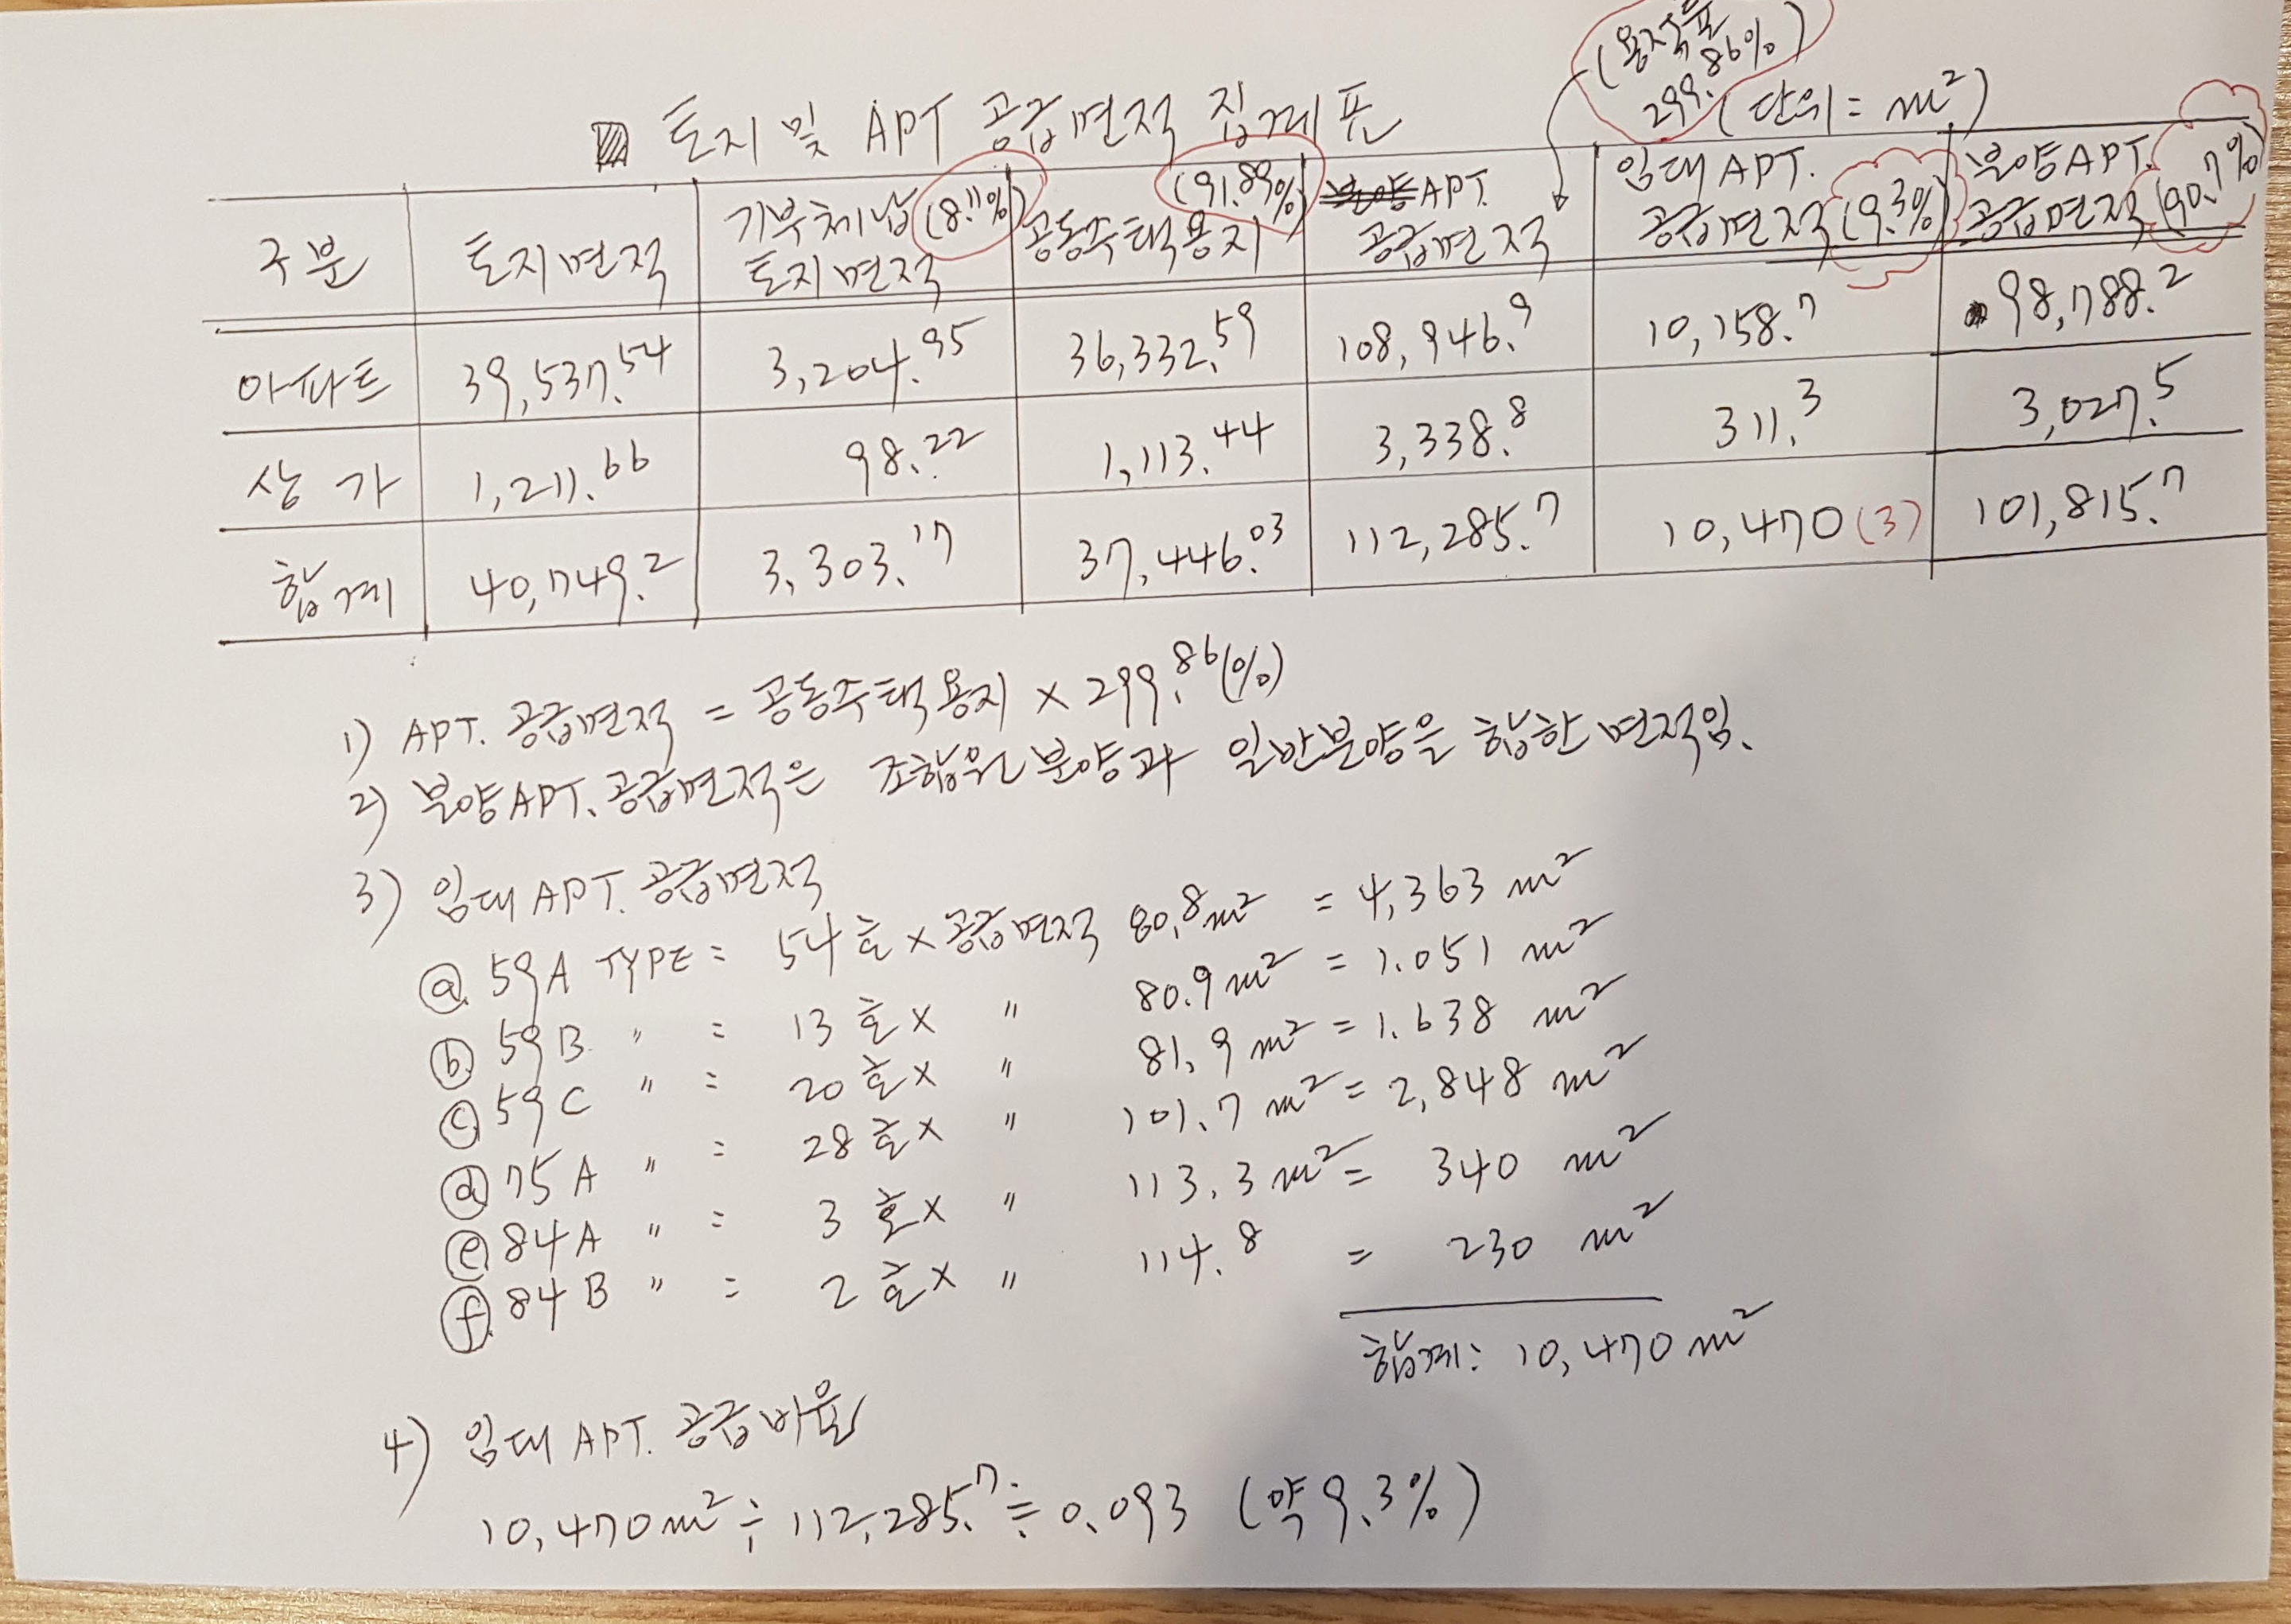 (용적율
299.86%)
▨ 토지 및 APT 공급면적 집계표 (단위 = m²)
구분 토지면적 기부체납 (8.11%) 토지면적 (91.89%) 공동주택용지 APT. 공급면적 임대APT. 공급면적 (9.3%) 분양APT. 공급면적 (90.7%)
아파트 39,537.54 3,204.95 36,332.59 108,946.9 10,158.7 98,788.2
상가 1,211.66 98.22 1,113.44 3,338.8 311.3 3,027.5
합계 40,749.2 3,303.17 37,446.03 112,285.7 10,470 (3) 101,815.7
1) APT. 공급면적 = 공동주택용지 × 299.86(%)
2) 분양APT. 공급면적은 조합원분양과 일반분양을 합한 면적임.
3) 임대APT. 공급면적
ⓐ 59A TYPE = 54호 × 공급면적 80.8m² = 4,363 m²
ⓑ 59B 〃 = 13호 × 〃 80.9m² = 1.051 m²
ⓒ 59C 〃 = 20호 × 〃 81.9m² = 1.638 m²
ⓓ 75A 〃 = 28호 × 〃 101.7m² = 2,848 m²
ⓔ 84A 〃 = 3호 × 〃 113.3m² = 340 m²
ⓕ 84B 〃 = 2호 × 〃 114.8 = 230 m²
합계: 10,470 m²
4) 임대APT. 공급비율
10,470m² ÷ 112,285.7 ≒ 0.093 (약 9.3%)